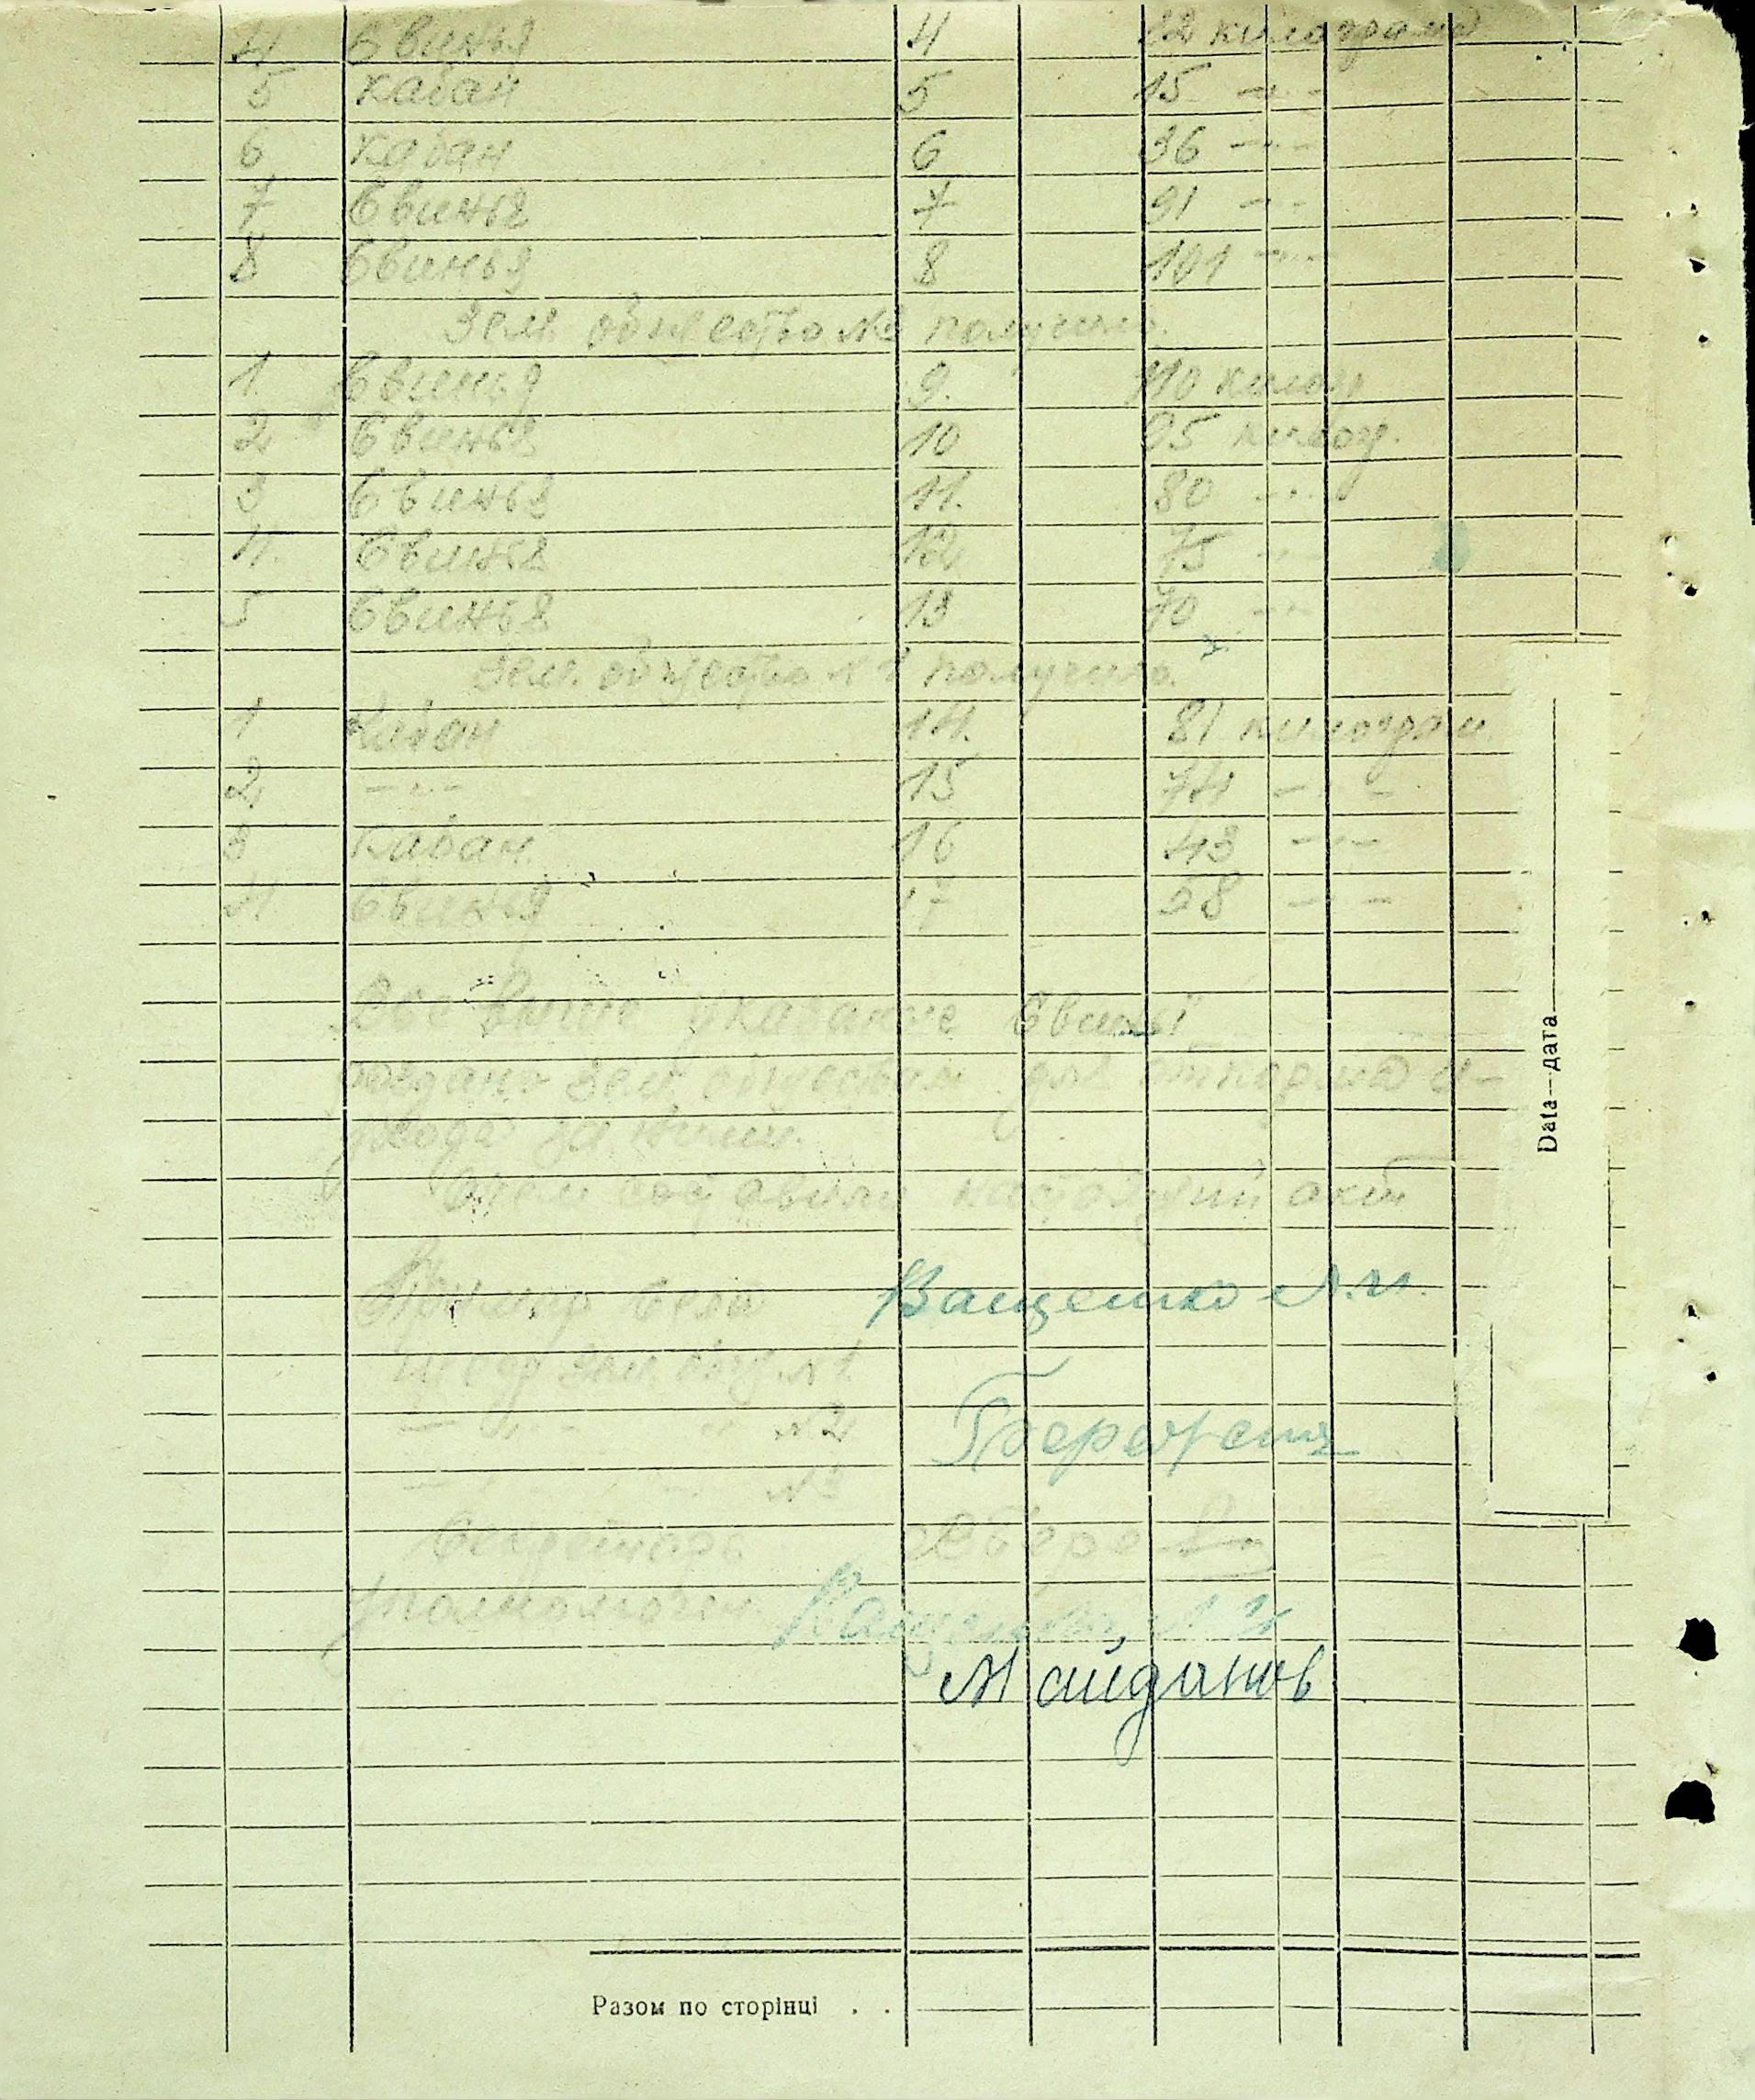 4 Свинья 4 22 килограма
5 Кабан 5 15 -"-
6 Кабан 6 36 -"-
7 Свинья 7 91 -"-
8 Свинья 8 101 -"-
Зем. общество № получило.
1. Свинья 9. 110 килогр
2 Свинья 10 95 килогр.
3 Свинья 11. 80 -"-
4. Свинья 12 75 -"-
5 Свинья 13 70 -"-
Зем. общество № получило.
1 Кабан 14. 81 килограм
2 -"- 15 74 -"-
3 Кабан 16 43 -"-
4 Свинья 17 58 -"-
Все выше указание Свиньї
зем. обществам для откорма и-
ухода за ними.
О чем составили настоящий акт
Примар села Ващенко
зем. общ. №1.
-"- №2
№
Секретарь
Уполномочен. Ващенко,
Майданов
Data—дата
Разом по сторінці . .